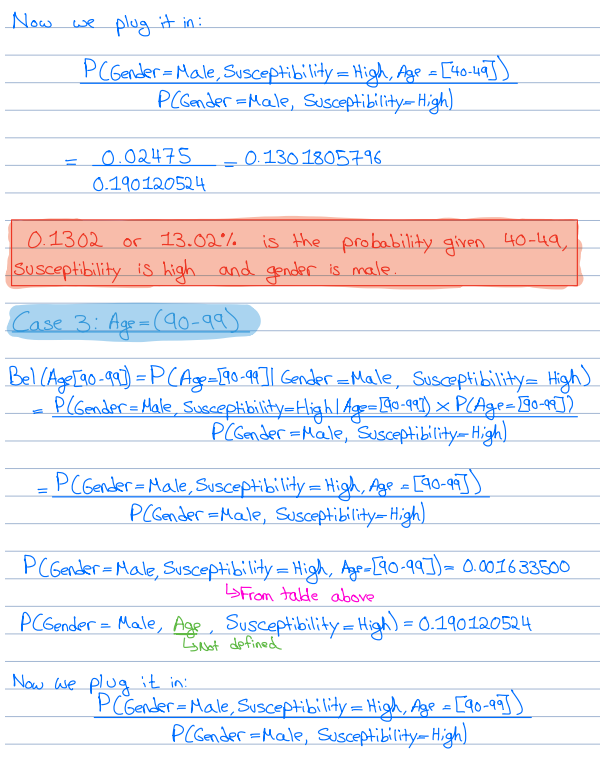 Now we plug it in:
P(Gender=Male, Susceptibility=High, Age=[40-49])
P(Gender=Male, Susceptibility=High)
= 0.02475 = 0.1301805796
0.190120524
0.1302 or 13.02% is the probability given 40-49,
susceptibility is high and gender is male.
Case 3: Age=(90-99)
Bel(Age[90-99])=P(Age=[90-99]|Gender=Male, Susceptibility=High)
= P(Gender=Male, Susceptibility=High|Age=[90-99])×P(Age=[90-99])
P(Gender=Male, Susceptibility=High)
= P(Gender=Male, Susceptibility=High, Age=[90-99])
P(Gender=Male, Susceptibility=High)
P(Gender=Male, Susceptibility=High, Age=[90-99])= 0.001633500
↳From table above
P(Gender=Male, Age, Susceptibility=High)=0.190120524
↳Not defined
Now we plug it in:
P(Gender=Male, Susceptibility=High, Age=[90-99])
P(Gender=Male, Susceptibility=High)